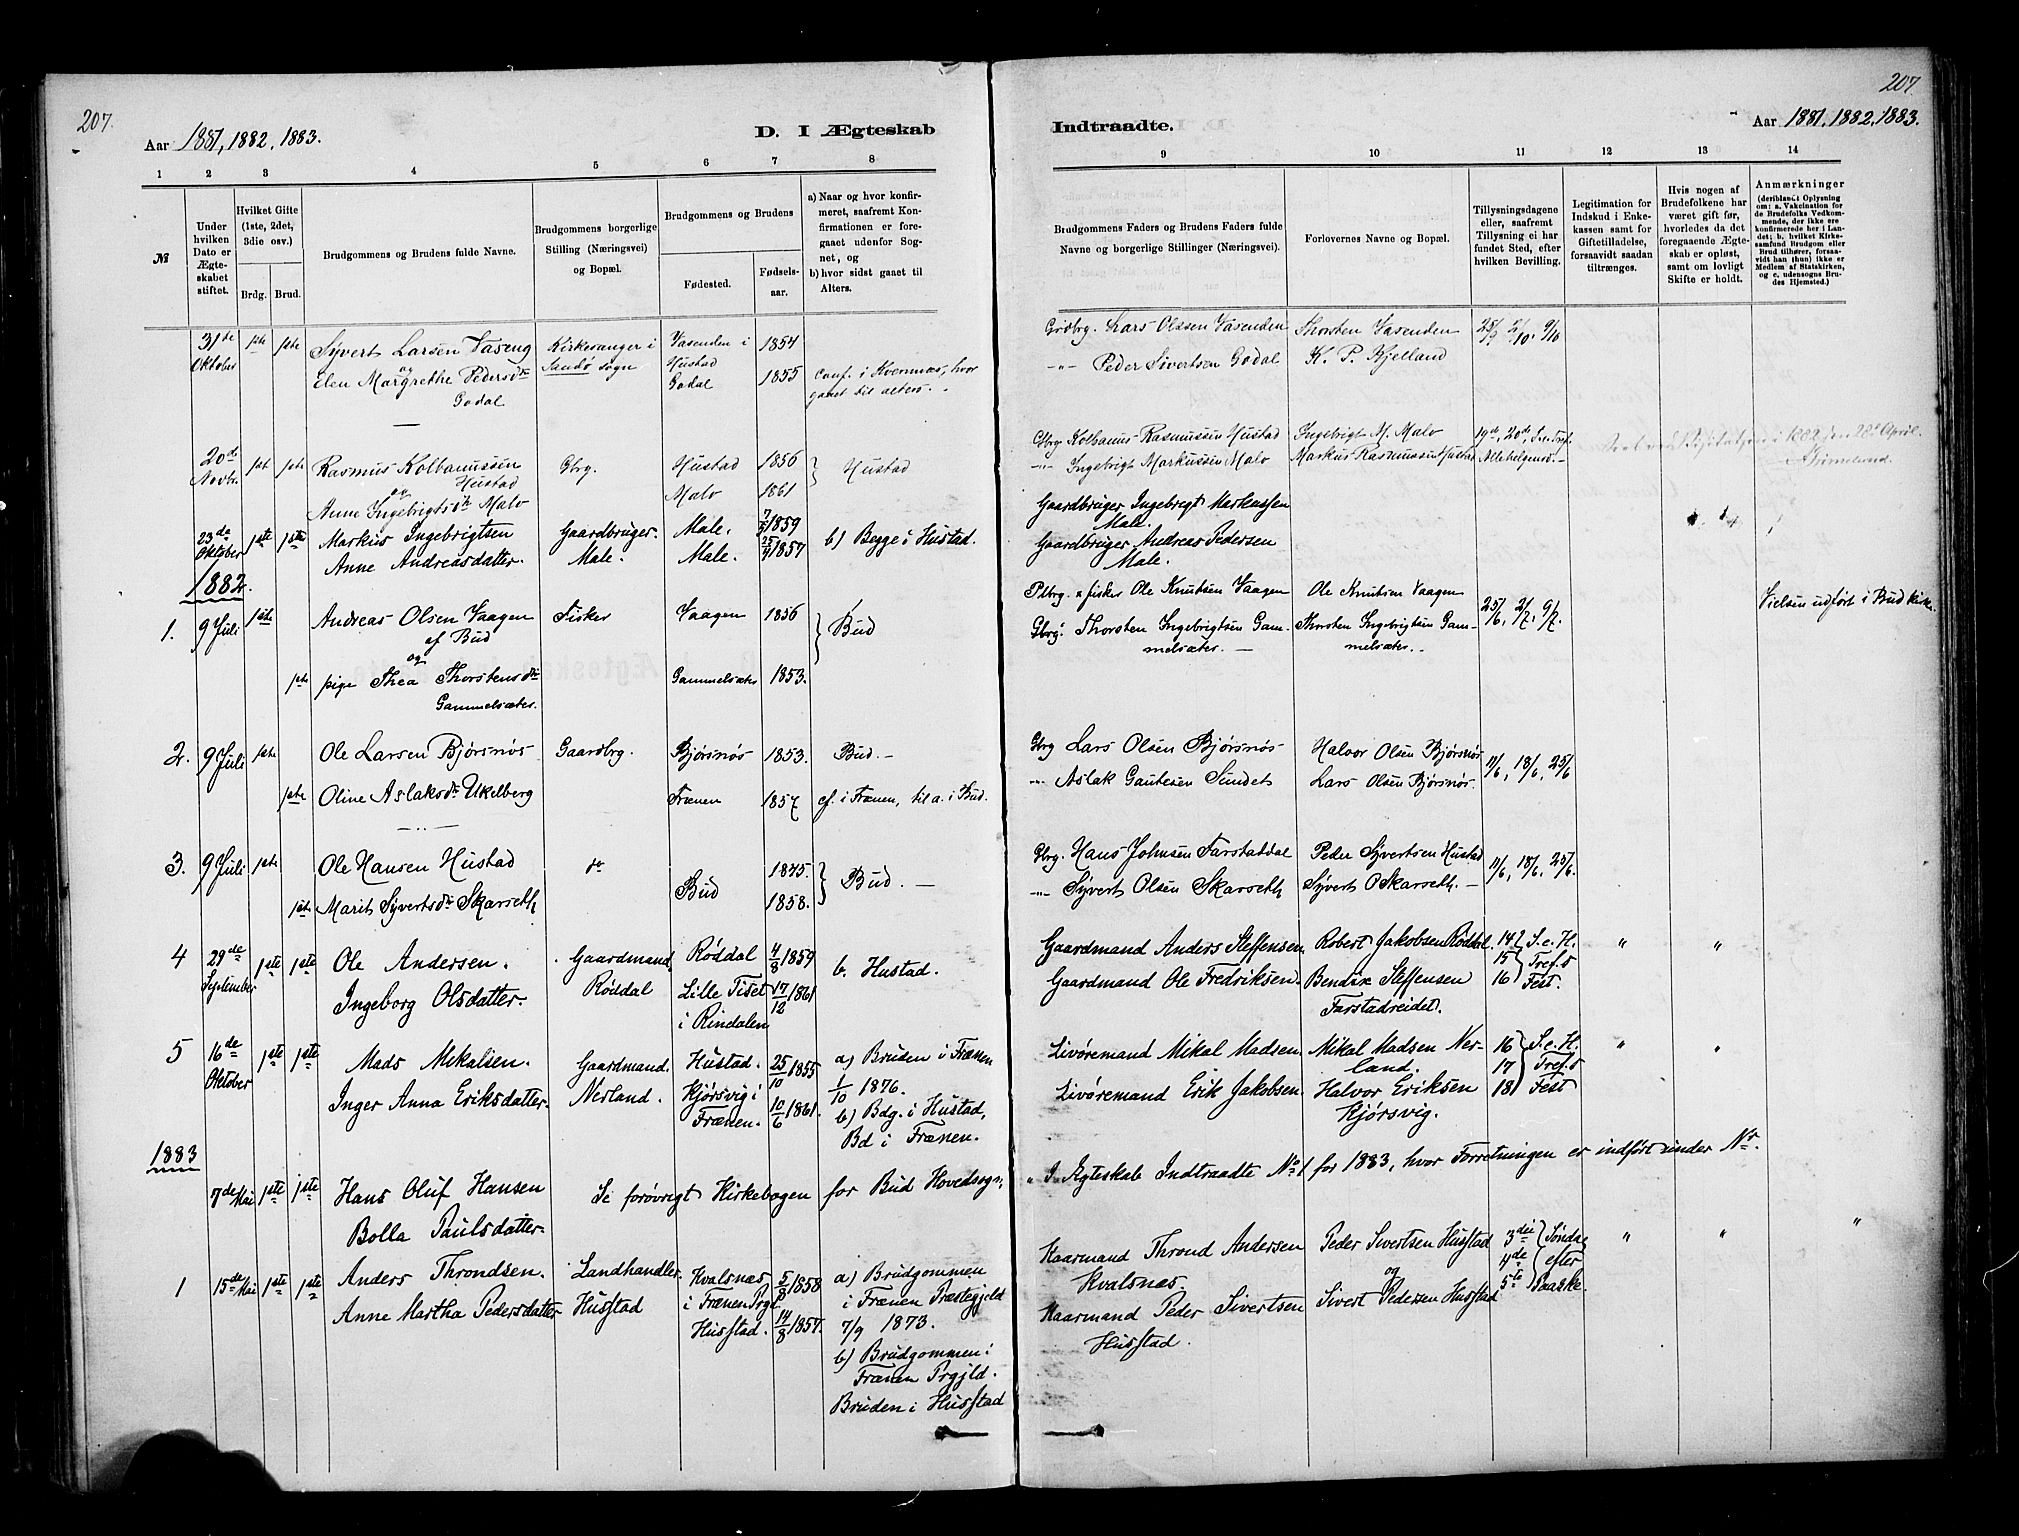 207.
207.
Aar 1881, 1882, 1883.
D. I Ægteskab
Indtraadte.
Aar 1881, 1882, 1883.
1 2 3 4 5 6 7 8
9 10 11 12 13 14
№
Under hvilken Dato er Ægteskabet stiftet.
Hvilket Gifte (1ste, 2det, 3die osv.)
Brdg. Brud.
Brudgommens og Brudens fulde Navne.
Brudgommens borgerlige Stilling (Næringsvei) og Bopæl.
Brudgommens og Brudens
Fødested.
Fødselsaar.
a) Naar og hvor konfirmeret, saafremt Konfirmationen er foregaaet udenfor Sognet, og
b) hvor sidst gaaet til Alters.
Brudgommens Faders og Brudens Faders fulde Navne og borgerlige Stillinger (Næringsvei).
Forlovernes Navne og Bopæl.
Tillysningsdagene eller, saafremt Tillysning ei har fundet Sted, efter hvilken Bevilling.
Legitimation for Indskud i Enkekassen samt for Giftetilladelse, forsaavidt saadan tiltrænges.
Hvis nogen af Brudefolkene har været gift før, hvorledes da det foregaaende Ægteskab er opløst, samt om lovligt Skifte er holdt.
Anmærkninger (deriblandt Oplysning om: a. Vakcination for de Brudefolks Vedkommende, der ikke ere konfirmerede her i Landet; b. hvilket Kirkesamfund Brudgom eller Brud tilhører, forsaavidt han (hun) ikke er Medlem af Statskirken, og c. udensogns Brudes Hjemsted.)
31te Oktober 1ste 1ste Syvert Larsen Vaseng Kirkesanger i Vasenden i 1854
Sandø sogn Hustad
og
Elen Margrethe Pedersdtr Godal Godal 1855 Conf. i Kvernnæs, hvor gaaet til alters. -
Grdbrg. Lars Olssen Vasenden Thorsten Vasenden 25/9 2/10 9/10
-"- Peder Sivertsen Godal K. P. Kjelland
20de Novbr. 1ste 1ste Rasmus Kolbanussen Hustad Gbrg. Hustad 1856 } Hustad
og
Anne Ingebrigtsdtr Malo Malo 1861
Gbrg Kolbanus Rasmussen Hustad Ingebrigt M. Malo 19de, 20de, S. e. Tref.
-"- Ingebrigt Markussen Malo Markus Rasmussen Hustad Allehelgensd. -
i 1882 den 28de April.
23de Oktober 1ste 1ste Markus Ingebrigtsen Gaardbruger Male. 1859 b) Begge i Hustad.
Anne Andreasdatter. Male. Male. 1857
Gaardbruger Ingebregt Markussen Male.
Gaardbruger Andreas Pedersen Male.
1882.
1. 9 Juli 1ste Andreas Olsen Vaagen Fisker Vaagen 1856 } Bud
af Bud
og
1ste pige Thea Thorstensdtr Gammelsæter. Gammelsæter 1853.
Plbrg. & fisker Ole Knutsen Vaagen Ole Knutsen Vaagen 25/6, 2/7, 9/7.
Gbrg. Thorsten Ingebrigtsen Gammelsæter. - Thorsten Ingebrigtsen Gammelsæter. -
Vielsen udført i Bud kirke.
2. 9 Juli 1ste Ole Larsen Bjørsnøs Gaardbrg. Bjørsnøs 1853. Bud. -
1ste Oline Aslaksdtr Ukelberg Frænen 1857 cf. i Frænen, til a. i Bud.
Gbrg Lars Olsen Bjørsnøs Halvor Olsen Bjørsnøs 11/6, 18/6, 25/6
-"- Aslak Gautesen Sundet Lars Olsen Bjørsnøs.
3. 9 Juli 1ste Ole Hansen Hustad do Bud 1845. } Bud. -
1ste Marit Syvertsdtr Skarseth 1858.
Gbrg. Hans Johnsen Farstaddal Peder Syvertsen Hustad 11/6, 18/6, 25/6.
-"- Syvert Olsen Skarseth Syvert O Skarseth. -
4 29de September 1ste 1ste Ole Andersen. Gaardmand, Røddal 4/8 1859 b. Hustad.
Ingeborg Olsdatter. Røddal Lille Tiset i Rindalen 17/12 1861
Gaardmand Anders Steffensen. Robert Jakobsen Røddal. 14 } S. e. H. " "
Gaardmand Ole Fredriksen. Bendik Steffensen Farstadreidet. 15 } Tref.s 16 } Fest.
5 16de Oktober 1ste 1ste Mads Mekalsen. Gaardmand. Hustad. 25/10 1855 a) Bruden i Frænen 1/10 1876.
Inger Anna Eriksdatter. Nerland. Kjørsvig i Frænen. 10/6 1861. b) Bdg. i Hustad, Bd i Frænen.
Livøremand Mikal Madsen. Mikal Madsen Nerland. 16 } S. e. H. " "
Livøremand Erik Jakobsen. Halvor Eriksen Kjørsvig. 17 } Tref.s 18 } Fest
1883
7de Mai 1ste 1ste Hans Oluf Hansen Se forøvrigt Kirkebogen for Bud Hovedsogn, "I Ægteskab Indtraadte No 1 for 1883, hvor Forretningen er indført under Nr.
Bolla Paulsdatter.
1 15de Mai 1ste 1ste Anders Throndsen. Landhandler. Kvalsnæs i Frænen Prgjd. 5/8 1858 a) Brudgommen i Frænen Præstegjeld 7/9 1873.
Anne Martha Pedersdatter Husstad Husstad. 14/8 1857. b) Brudgommen i Frænen Prgjld. Bruden i Husstad
Kaarmand Thrond Andersen Kvalsnæs. Peder Sivertsen Husstad 3die } Søndag " " "
og
Kaarmand Peder Sivertsen Husstad. Sivert Pedersen Husstad 4de } efter 5te } Paaske.